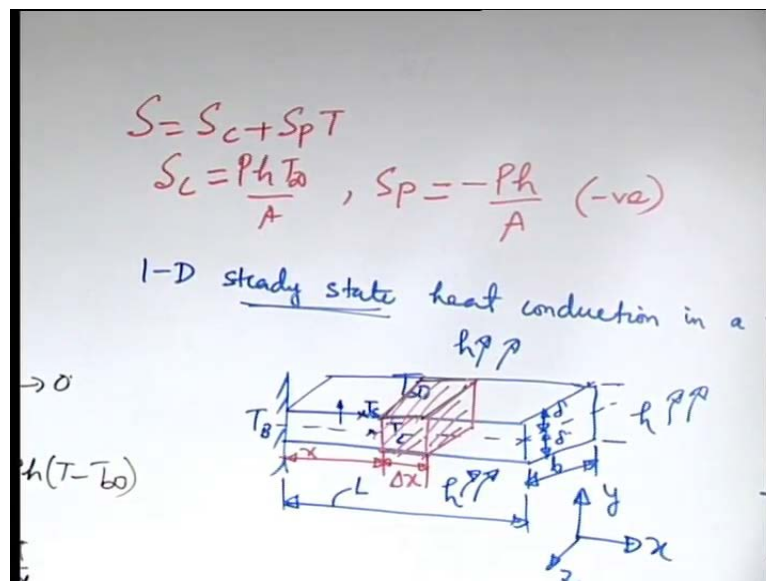 S = Sc + Sp T
Sc = PhT∞/A , Sp = -Ph/A (-ve)
1-D steady state heat conduction in a
h
→ 0
T∞
h
TB
Ts
Tc
δ
δ
h(T-T∞)
x
Δx
h
b
L
y
x
z